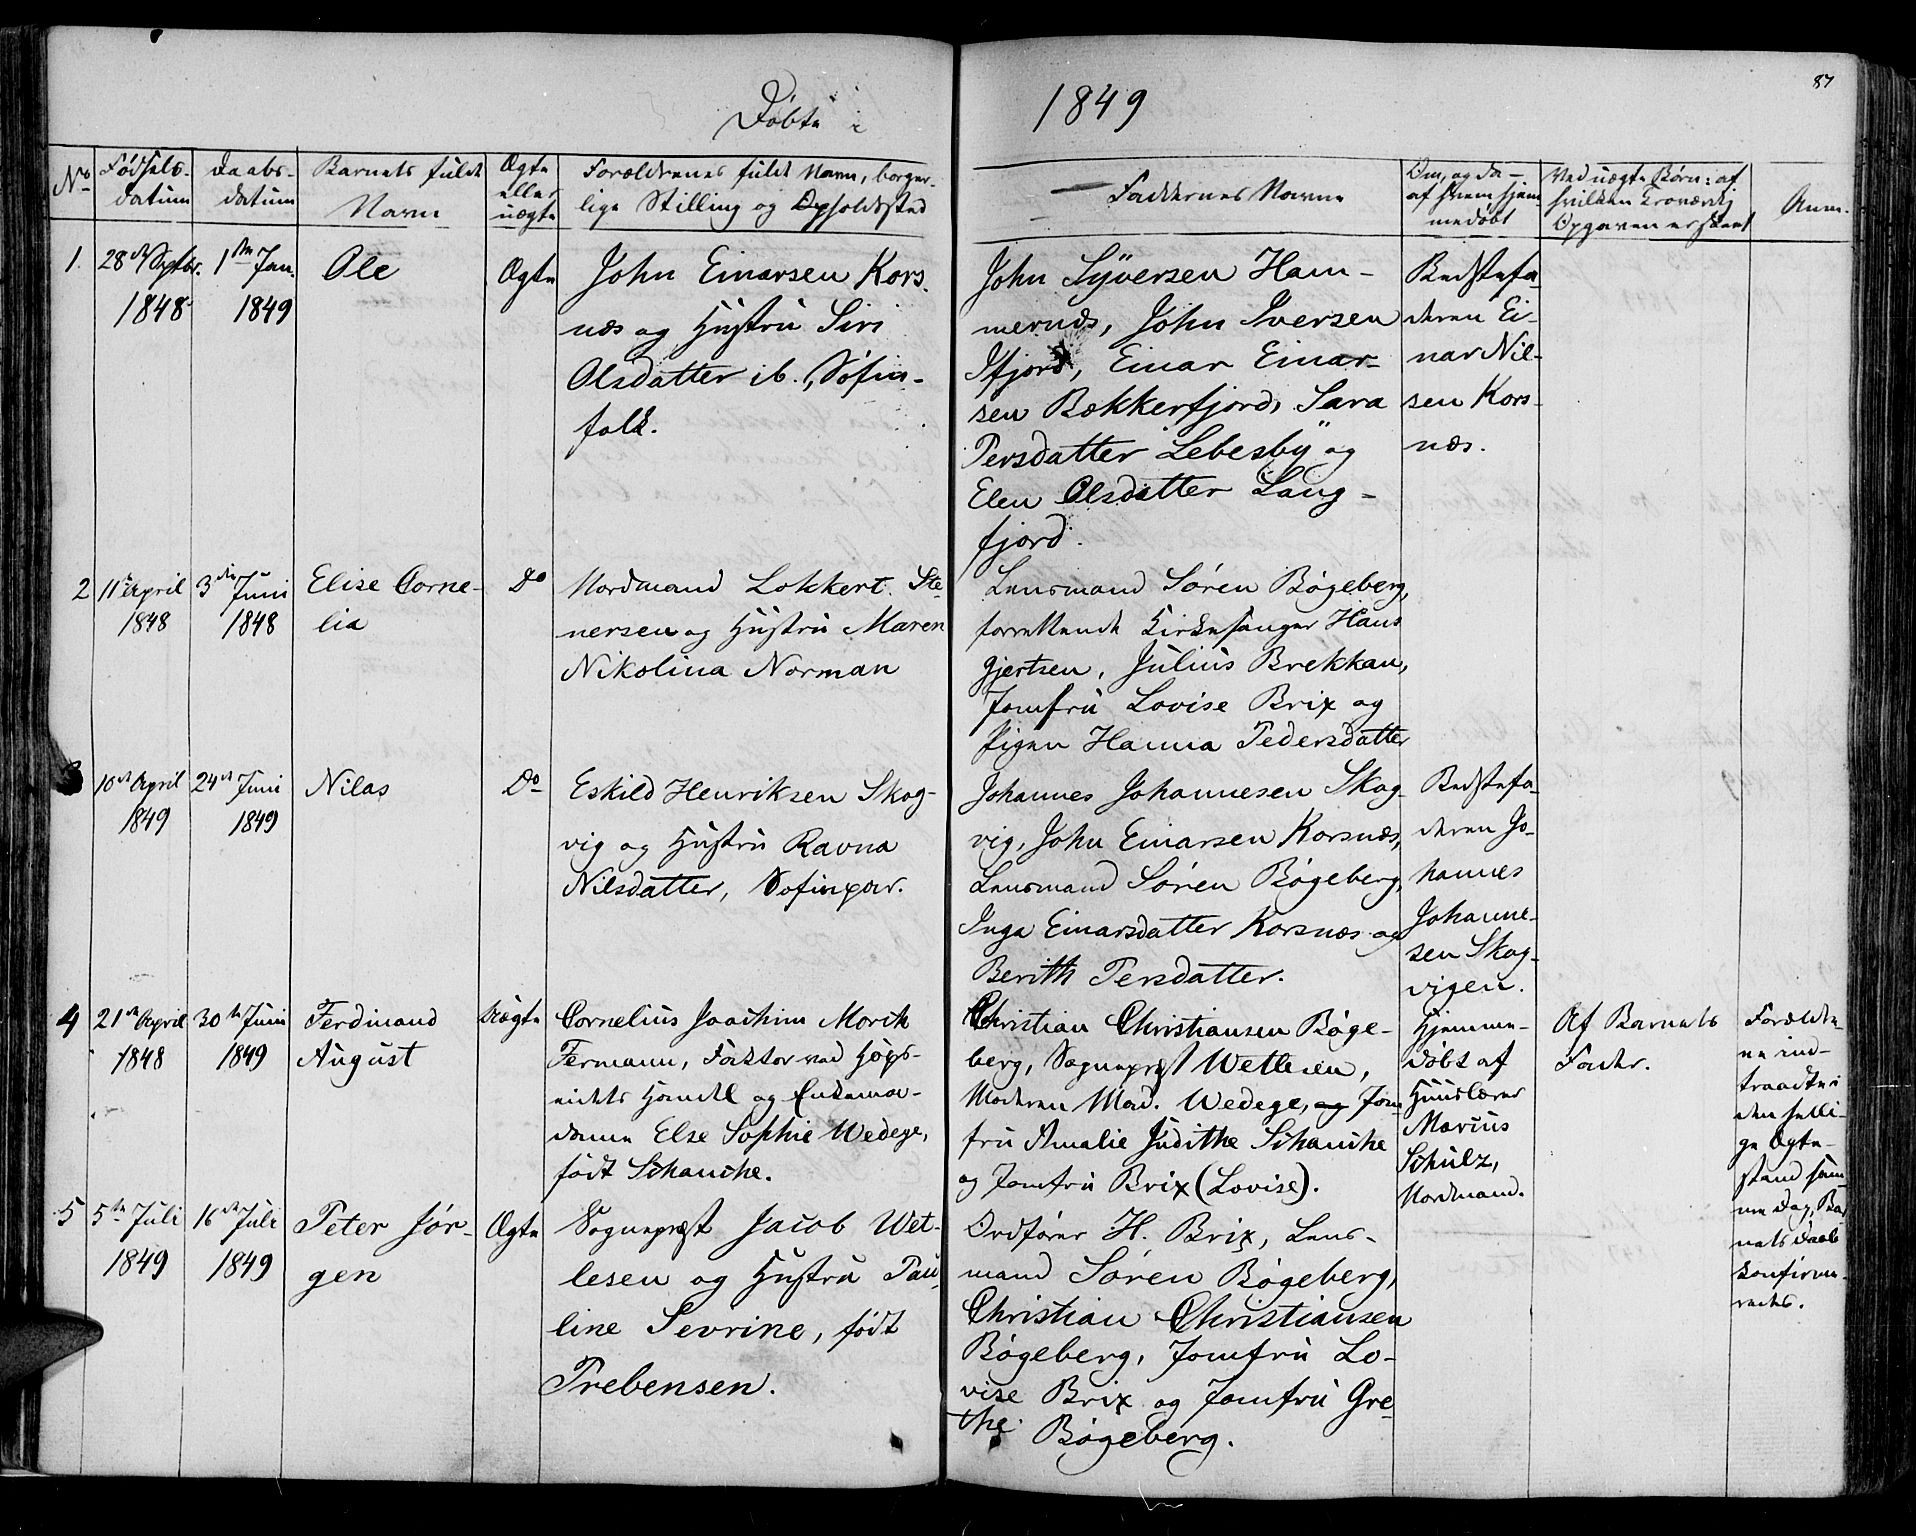 87
Døbte i 1849
No
Fødsels-
datum
Daabs-
datum
Barnets fulde
Navn
Ægte
eller
uægte
Forældrenes fulde Navn, borger-
lige Stilling og Opholdssted
Faddernes Navne
Om, og da
af hvem hjem-
medøbt
Ved uægte Børn: af
hvilken Troværdig
Opgaven er skeet
Anm.
1.
28de Septbr.
1848
1ste Jan.
1849
Ole
Ægte
John Einarsen Kors-
næs og Hustru Siri
Olsdatter ib., Søfin-
folk.
John Syversen Ham-
mernæs, John Iversen
Ifjord, Einar Einar-
sen Bækkerfjord, Sara
Persdatter Lebesby og
Elen Olsdatter Lang-
fjord.
Bedstefa-
deren Ei-
nar Nil-
sen Kors-
næs.
2
11te April
1848
3die Juni
1848
Elise Corne-
lia
Do
Nordmand Lokkert Ste-
nersen og Hustru Maren
Nikolina Norman
Lensmand Søren Bøgeberg,
forrettende Kirkesanger Hans
Gjertsen, Julius Brekkan,
Jomfru Lovise Brix og
Pigen Hanna Pedersdatter
3
10de April
1849
24de Juni
1849
Nilas
Do
Eskild Henriksen Skog-
vig og Hustru Ravna
Nilsdatter, Søfinpar.
Johannes Johannesen Skog-
vig, John Einarsen Korsnæs,
Lensmand Søren Bøgeberg,
Inga Einarsdatter Korsnæs og
Berith Persdatter.
Bedstefa-
deren Jo-
hannes
Johanne-
sen Skog-
vigen.
4
21de April
1848
30te Juni
1849
Ferdinand
August
Uægte
Cornelius Joachim Morith
Fermann, Faktor ved Hops-
eidets Handel og Enkema-
dame Else Sophie Wedege,
født Schanche.
Christian Christiansen Bøge-
berg, Sognepræst Wetlesen,
Moderen Mad. Wedege, og Jom-
fru Amalie Judithe Schanche
og Jomfru Brix (Lovise).
Hjemme-
døbt af
Huuslærer
Marius
Schulz,
Nordmand.
Af Barnets
Fader.
Forældre-
ne ind-
traadte i
den helli-
ge Ægte-
stand sam-
me Dag, Bar
nets Daab
konfirme-
redes.
5
5te Juli
1849
16de Juli
1849
Peter Jør-
gen
Ægte
Sognepræst Jacob Wet-
lesen og Hustru Pau-
line Sevrine, født
Prebensen.
Ordfører H. Brix, Lens-
mand Søren Bøgeberg,
Christian Christiansen
Bøgeberg, Jomfru Lo-
vise Brix og Jomfru Gre-
the Bøgeberg.